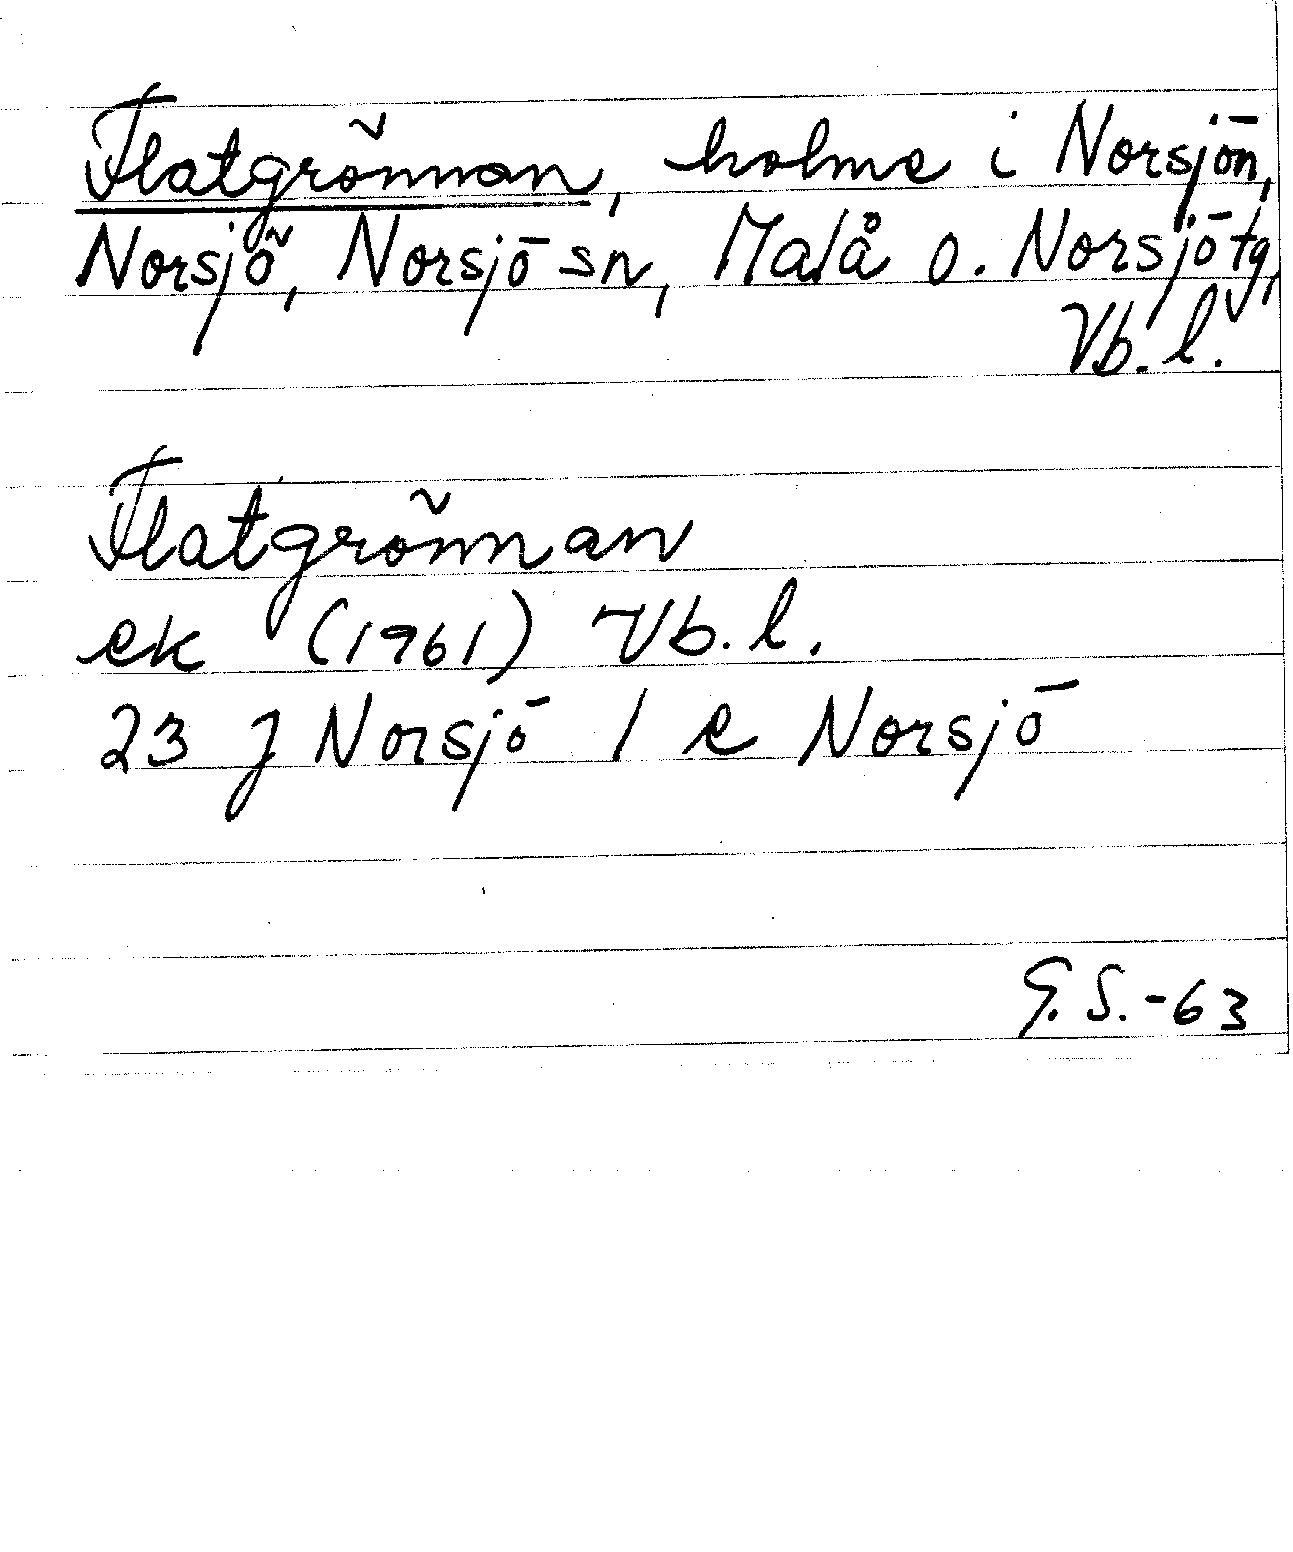 Flatgrönnan, holme i Norsjön,
Norsjö, Norsjö sn, Malå o. Norsjö tg,
Vb. l.
Flatgrönnan
ek (1961) Vb. l.
23 J Norsjö 1 e Norsjö
G. S. -63